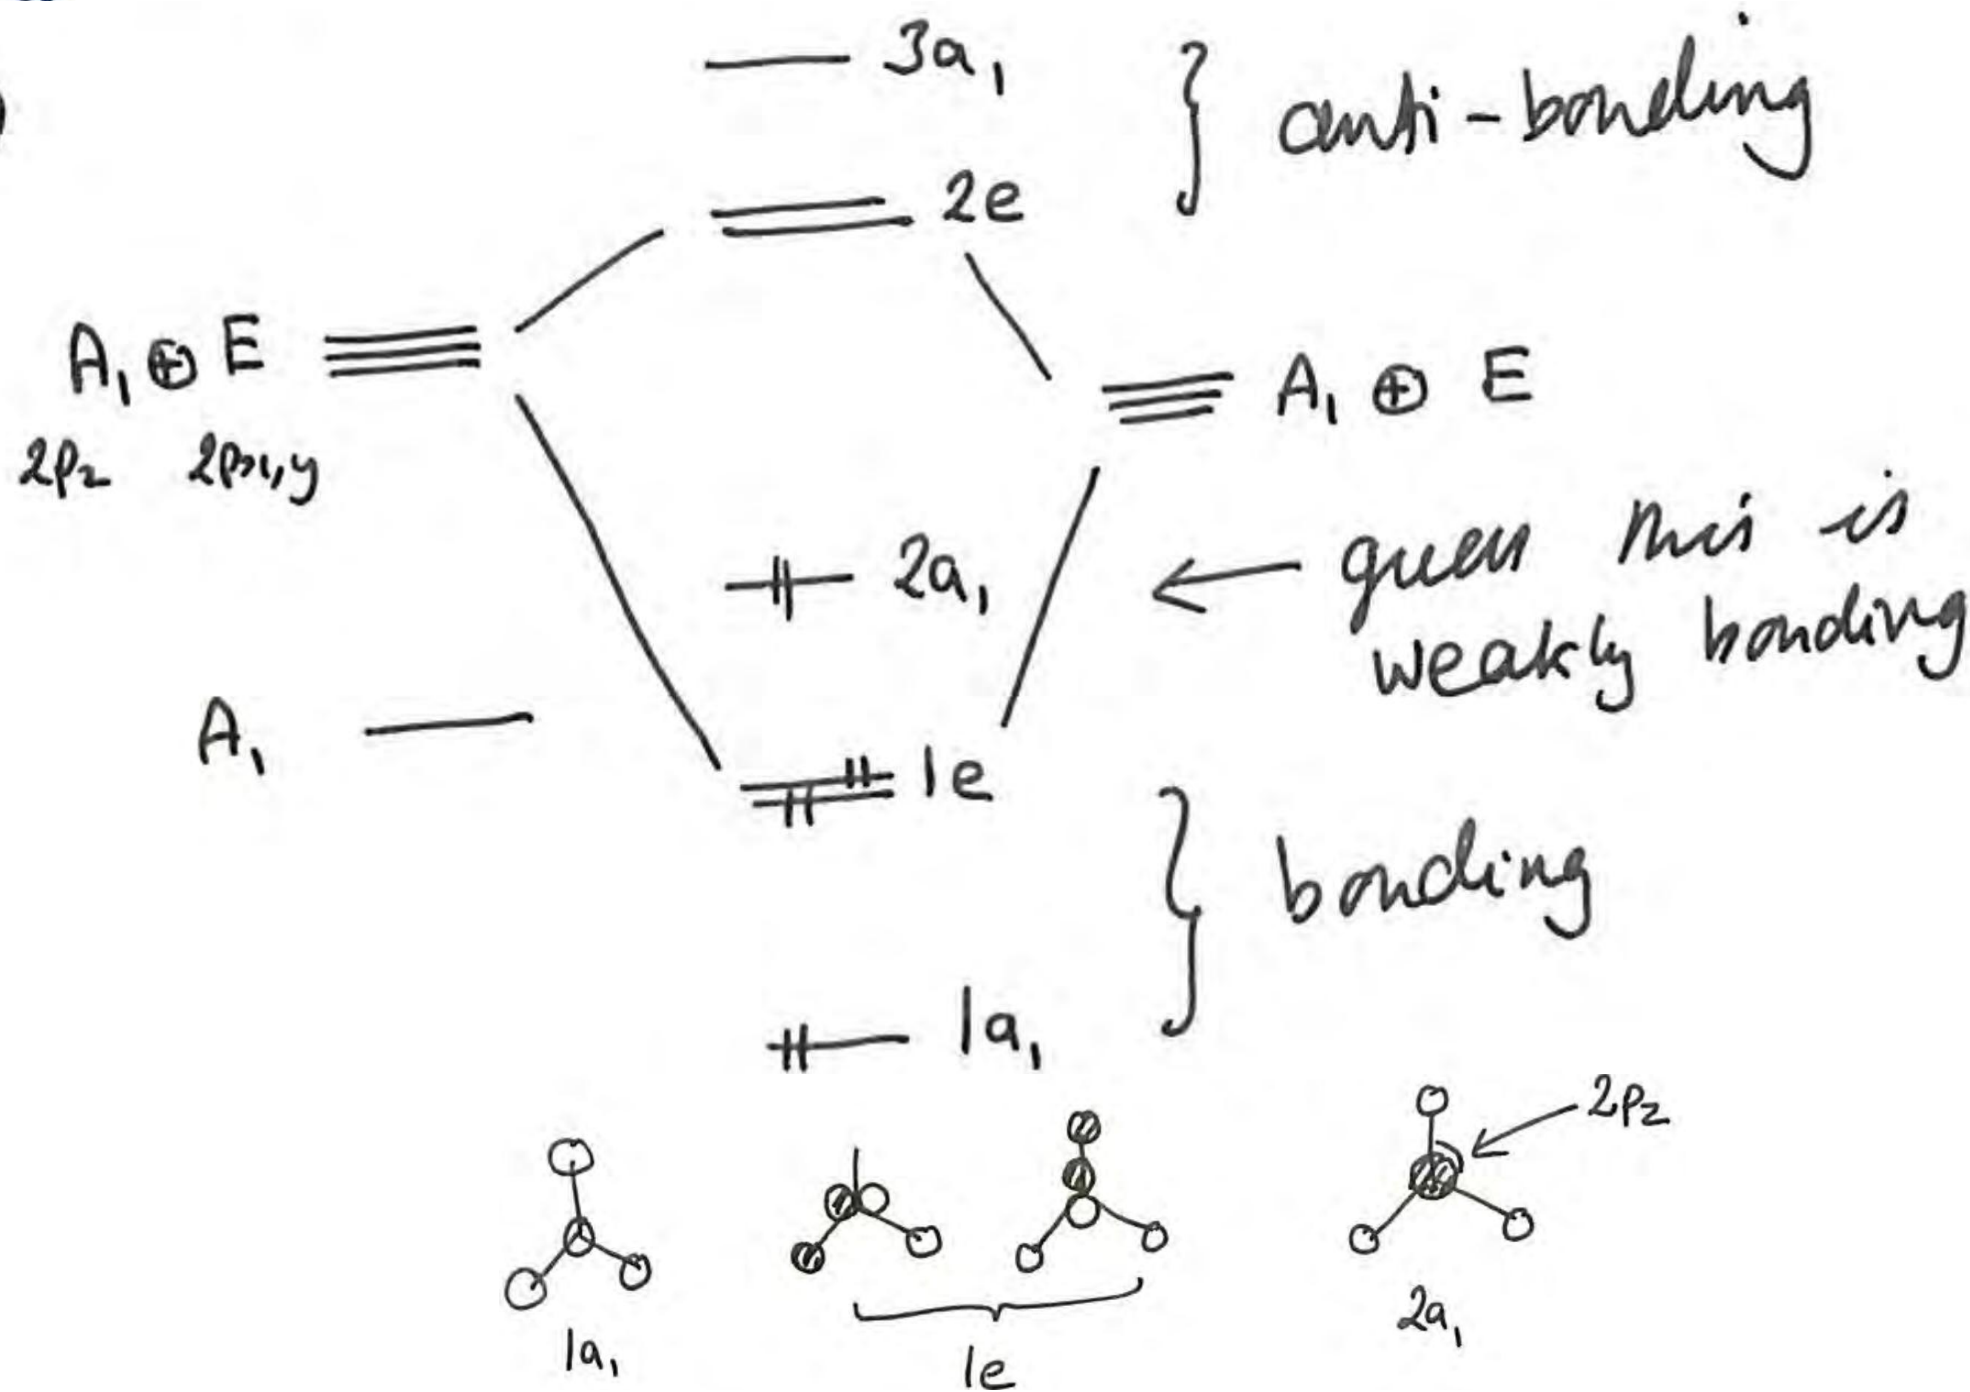 3a₁ } anti-bonding
2e
A₁ ⊕ E
2p_z 2p_x,y
A₁ ⊕ E
2a₁ ← guess this is
weakly bonding
A₁
1e
} bonding
1a₁
2p_z
1a₁
1e
2a₁